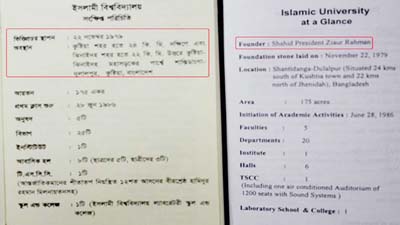 ইসলামী বিশ্ববিদ্যালয়
সংক্ষিপ্ত পরিচিতি
ভিত্তিপ্রস্তর স্থাপন : ২২ নভেম্বর ১৯৭৯
অবস্থান : কুষ্টিয়া শহর হতে ২৪ কি. মি. দক্ষিণে এবং
ঝিনাইদহ শহর হতে ২২ কি. মি. উত্তরে কুষ্টিয়া-
ঝিনাইদহ মহাসড়কের পার্শ্বে শান্তিডাঙ্গা-
দুলালপুর, কুষ্টিয়া, বাংলাদেশ
আয়তন : ১৭৫ একর
প্রথম ক্লাস শুরু : ২৮ জুন ১৯৮৬
অনুষদ : ৫টি
বিভাগ : ২৫টি
ইনস্টিটিউট : ১টি
আবাসিক হল : ৮টি (ছাত্রদের ৫টি, ছাত্রীদের ৩টি)
টি.এস.সি.সি. : ১টি
(আন্তর্জাতিকমানের শীতাতপ নিয়ন্ত্রিত ১২শত আসনের বীরশ্রেষ্ঠ হামিদুর
রহমান মিলনায়তনসহ)
স্কুল এন্ড কলেজ : ১টি (ইসলামী বিশ্ববিদ্যালয় ল্যাবরেটরী স্কুল এন্ড
কলেজ)
Islamic University
at a Glance
Founder : Shahid President Ziaur Rahman
Foundation stone laid on : November 22, 1979
Location : Shantidanga-Dulalpur (Situated 24 kms
south of Kushtia town and 22 kms
north of Jhenidah), Bangladesh
Area : 175 acres
Initiation of Academic Activities : June 28, 1986
Faculties : 5
Departments : 20
Institute : 1
Halls : 6
TSCC : 1
(Including one air conditioned Auditorium of
1200 seats with Sound Systems )
Laboratory School & College : 1